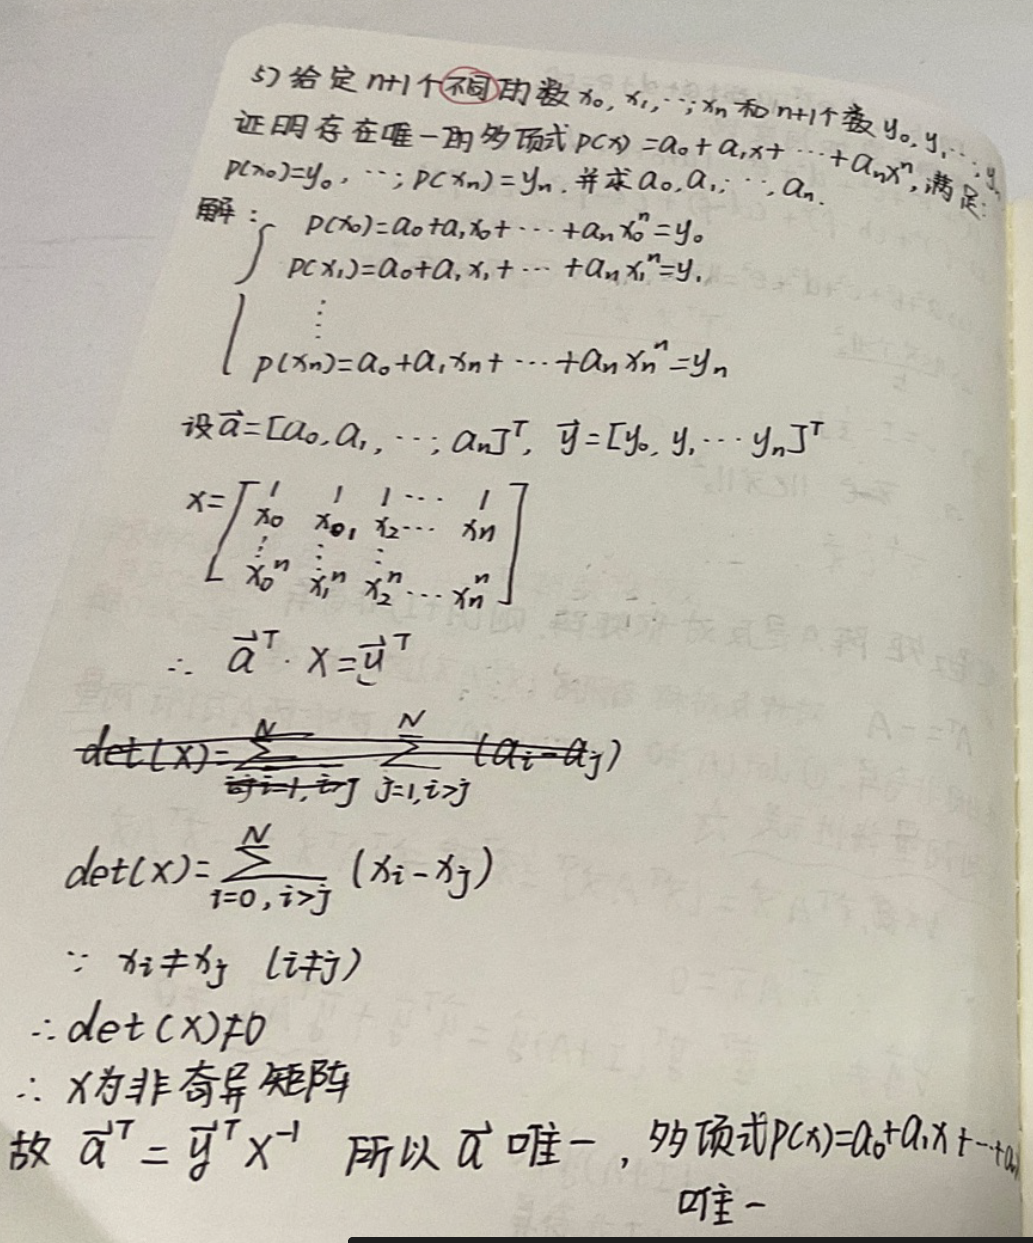 5) 给定n+1个不同的数x₀, x₁, …, xₙ和n+1个数y₀, y₁, …, yₙ
证明存在唯一的多项式P(x)=a₀+a₁x+⋯+aₙxⁿ, 满足:
P(x₀)=y₀, …, P(xₙ)=yₙ. 并求a₀, a₁, …, aₙ.
解: P(x₀)=a₀+a₁x₀+⋯+aₙx₀ⁿ=y₀
P(x₁)=a₀+a₁x₁+⋯+aₙx₁ⁿ=y₁
⋮
P(xₙ)=a₀+a₁xₙ+⋯+aₙxₙⁿ=yₙ
设a⃗=[a₀, a₁, …, aₙ]ᵀ, y⃗=[y₀, y₁ ⋯ yₙ]ᵀ
X=[1 1 1 ⋯ 1
x₀ x₀₁ x₂ ⋯ xₙ
⋮ ⋮ ⋮
x₀ⁿ x₁ⁿ x₂ⁿ ⋯ xₙⁿ]
∴ a⃗ᵀ · X=y⃗ᵀ
det(X)=∑ᴺ i=1, i>j ∑ᴺ j=1, i>j (aᵢ-aⱼ)
det(X)=∑ᴺ i=0, i>j (xᵢ-xⱼ)
∵ xᵢ≠xⱼ (i≠j)
∴ det(X)≠0
∴ X为非奇异矩阵
故 a⃗ᵀ=y⃗ᵀX⁻¹ 所以a⃗唯一, 多项式P(x)=a₀+a₁x+⋯+aₙ
唯一